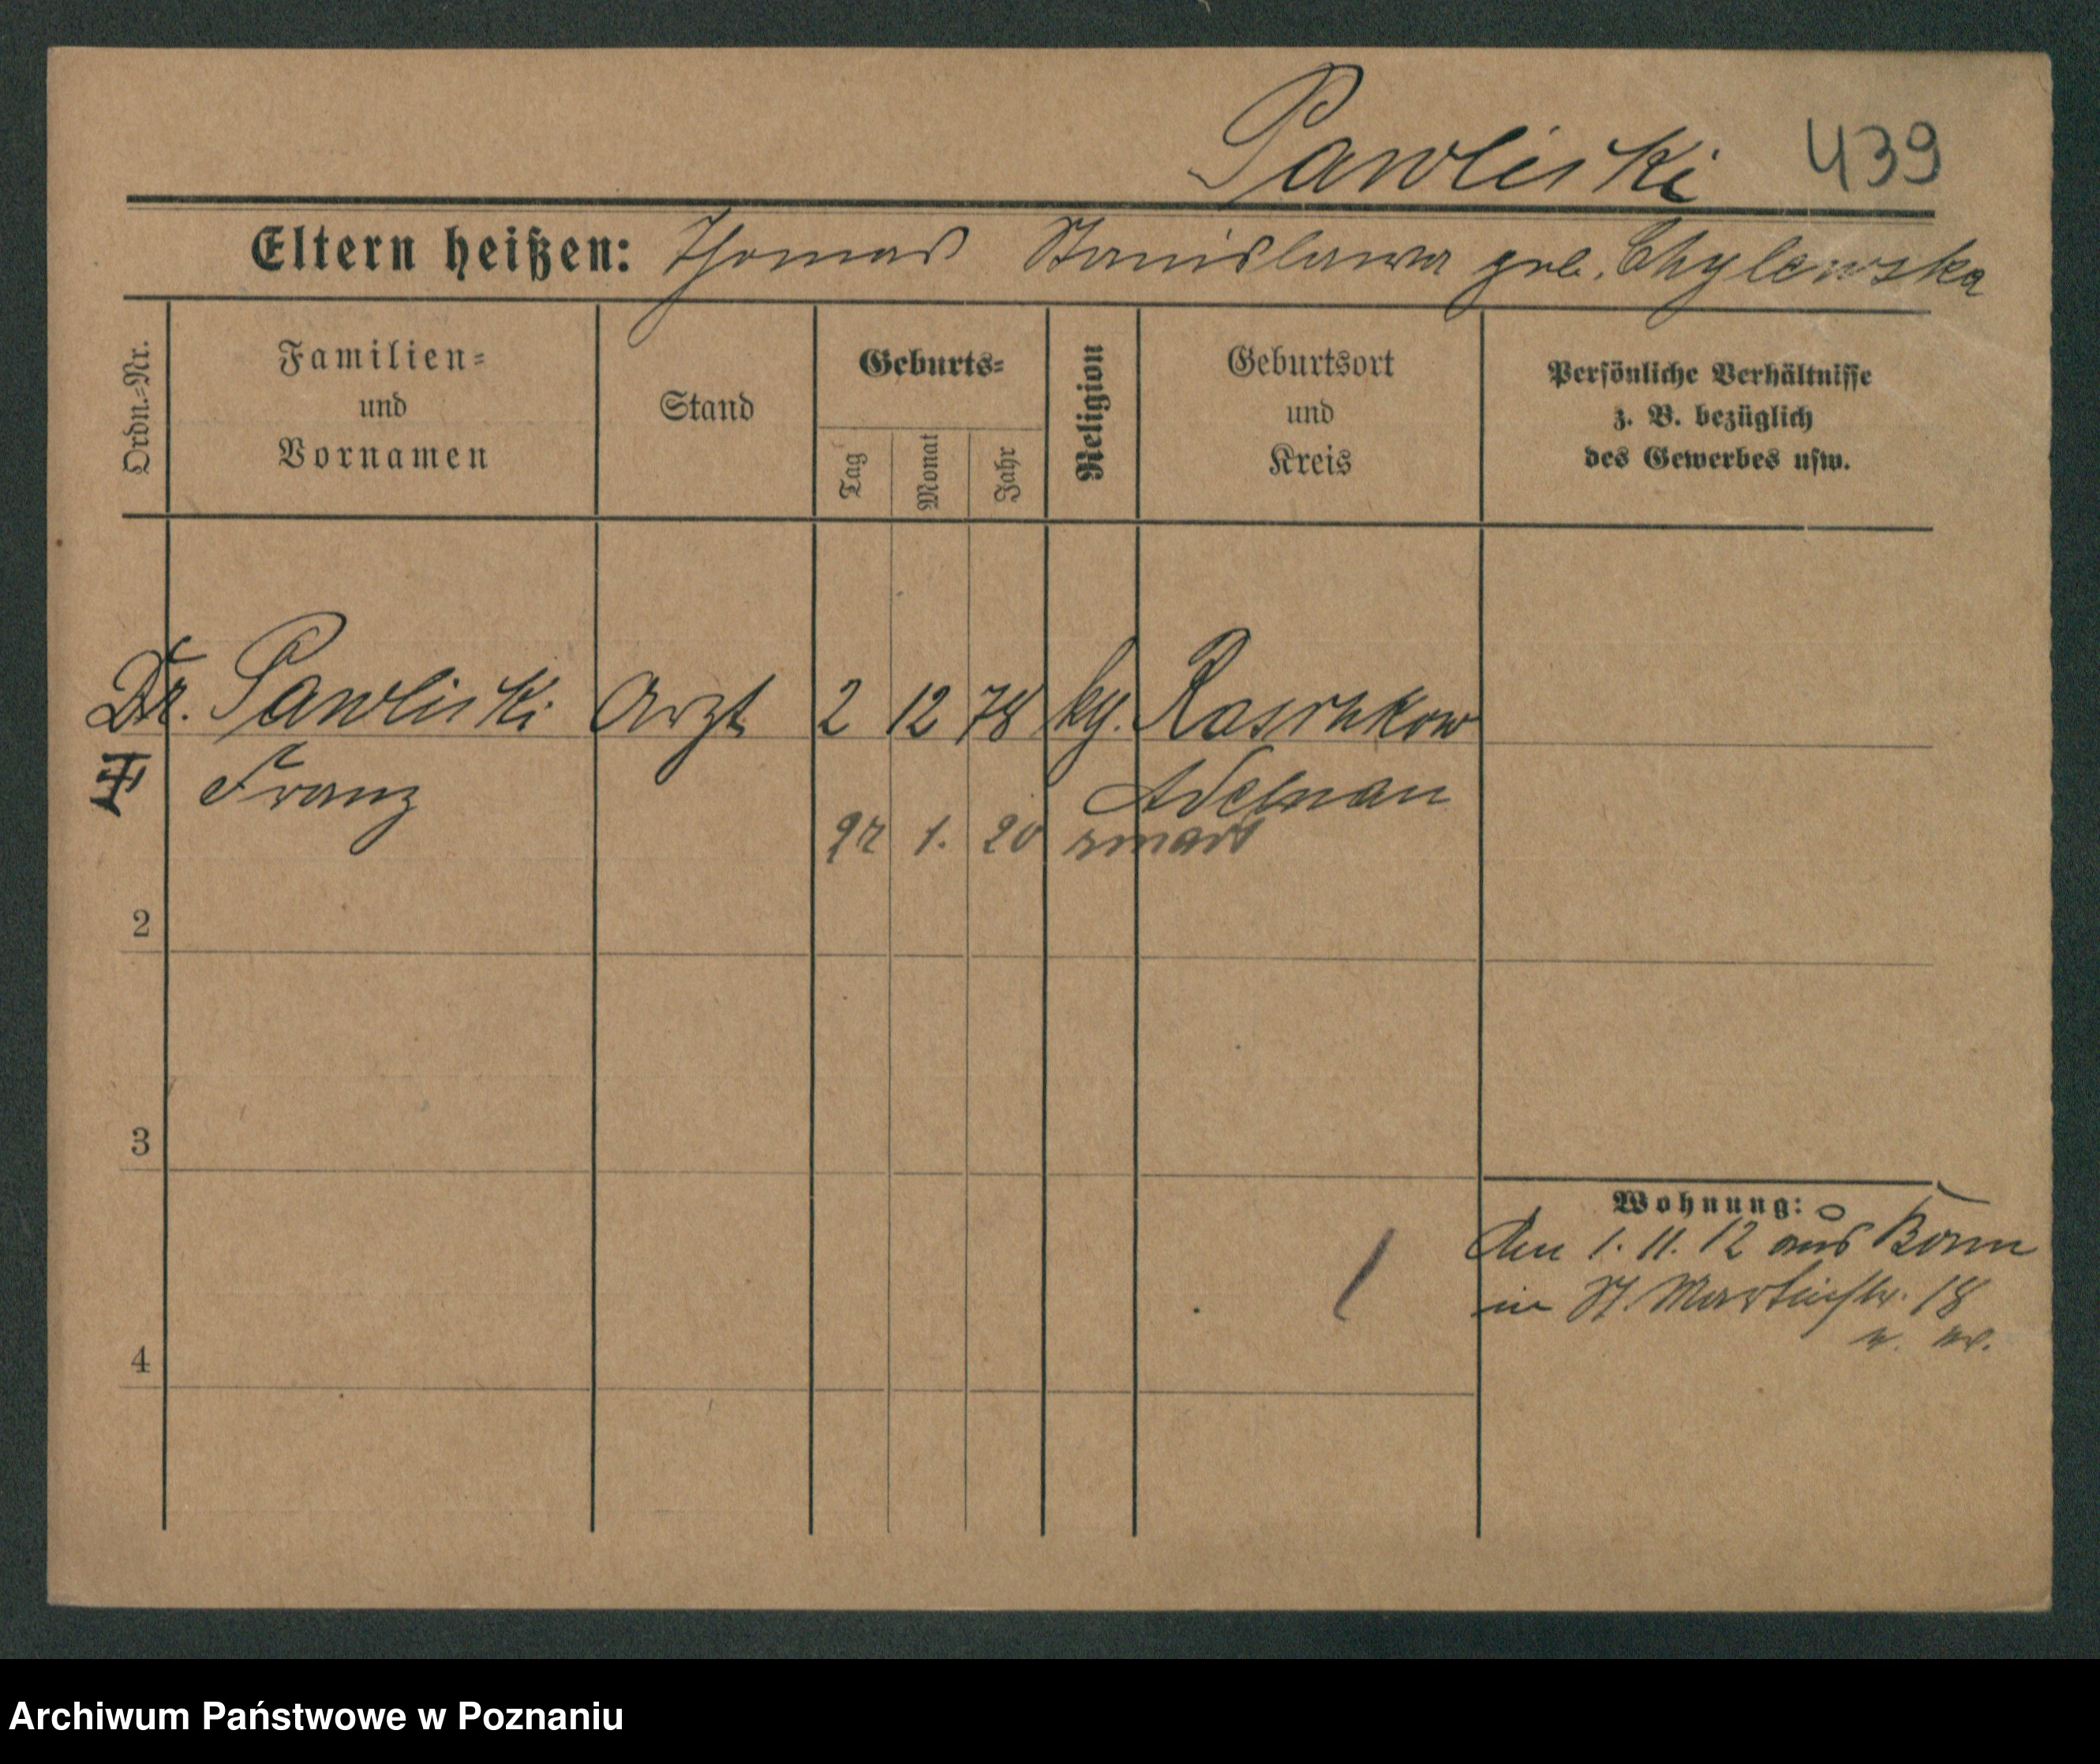 Pawliski 439
Eltern heißen: Thomas Stanislawa geb. Chylewska
Ordn.=Nr.
Familien=
und
Vornamen
Stand
Geburts=
Tag
Monat
Jahr
Religion
Geburtsort
und
Kreis
Persönliche Verhältnisse
z. B. bezüglich
des Gewerbes usw.
Dr. Pawliski Arzt 2 12 78 kg. Raschkow
Franz Adelnau
1. 20 zmarł
2
3
4
Wohnung:
Den 1. 11. 12 aus Bonn
in St. Martinstr. 18
Archiwum Państwowe w Poznaniu